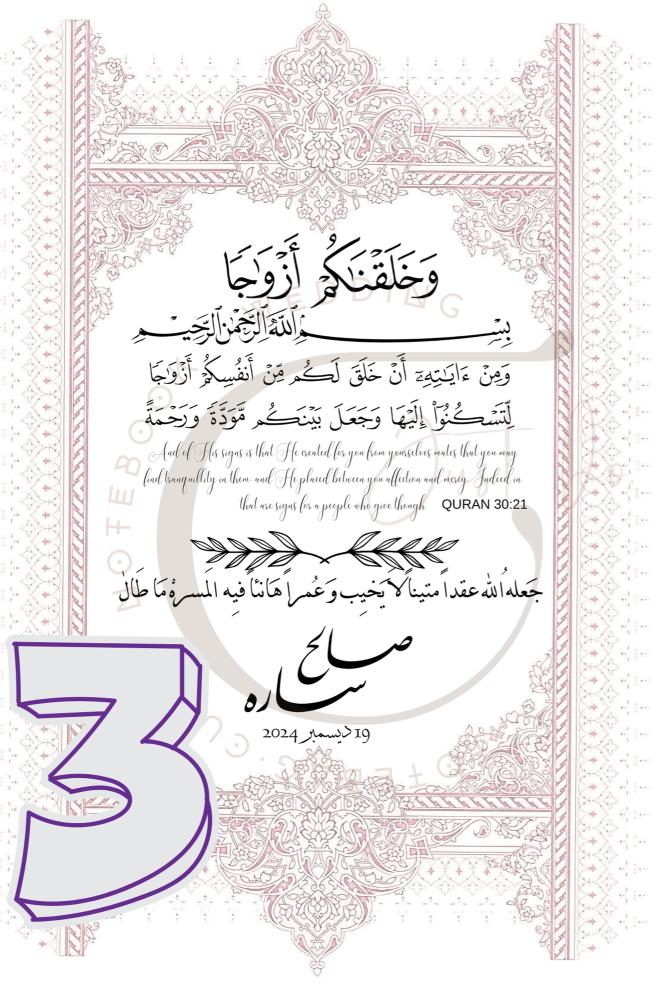 وَخَلَقْنَاكُمْ أَزْوَاجًا
بِسْمِ اللَّهِ الرَّحْمَٰنِ الرَّحِيمِ
وَمِنْ ءَايَـٰتِهِۦٓ أَنْ خَلَقَ لَكُم مِّنْ أَنفُسِكُمْ أَزْوَٰجًا
لِّتَسْكُنُوٓا۟ إِلَيْهَا وَجَعَلَ بَيْنَكُم مَّوَدَّةً وَرَحْمَةً
And of His signs is that He created for you from yourselves mates that you may
find tranquillity in them. and He placed between you affection and mercy. Indeed in
that are signs for a people who give though QURAN 30:21
جَعله اُلله عقداً متيناً لاَ يَخيِب وَعُمراً هَانئاً فيه المسرهْ مَا طَالْ
صالح
ساره
19 ديسمبر 2024
3
WEDDING
NOTEBOOK